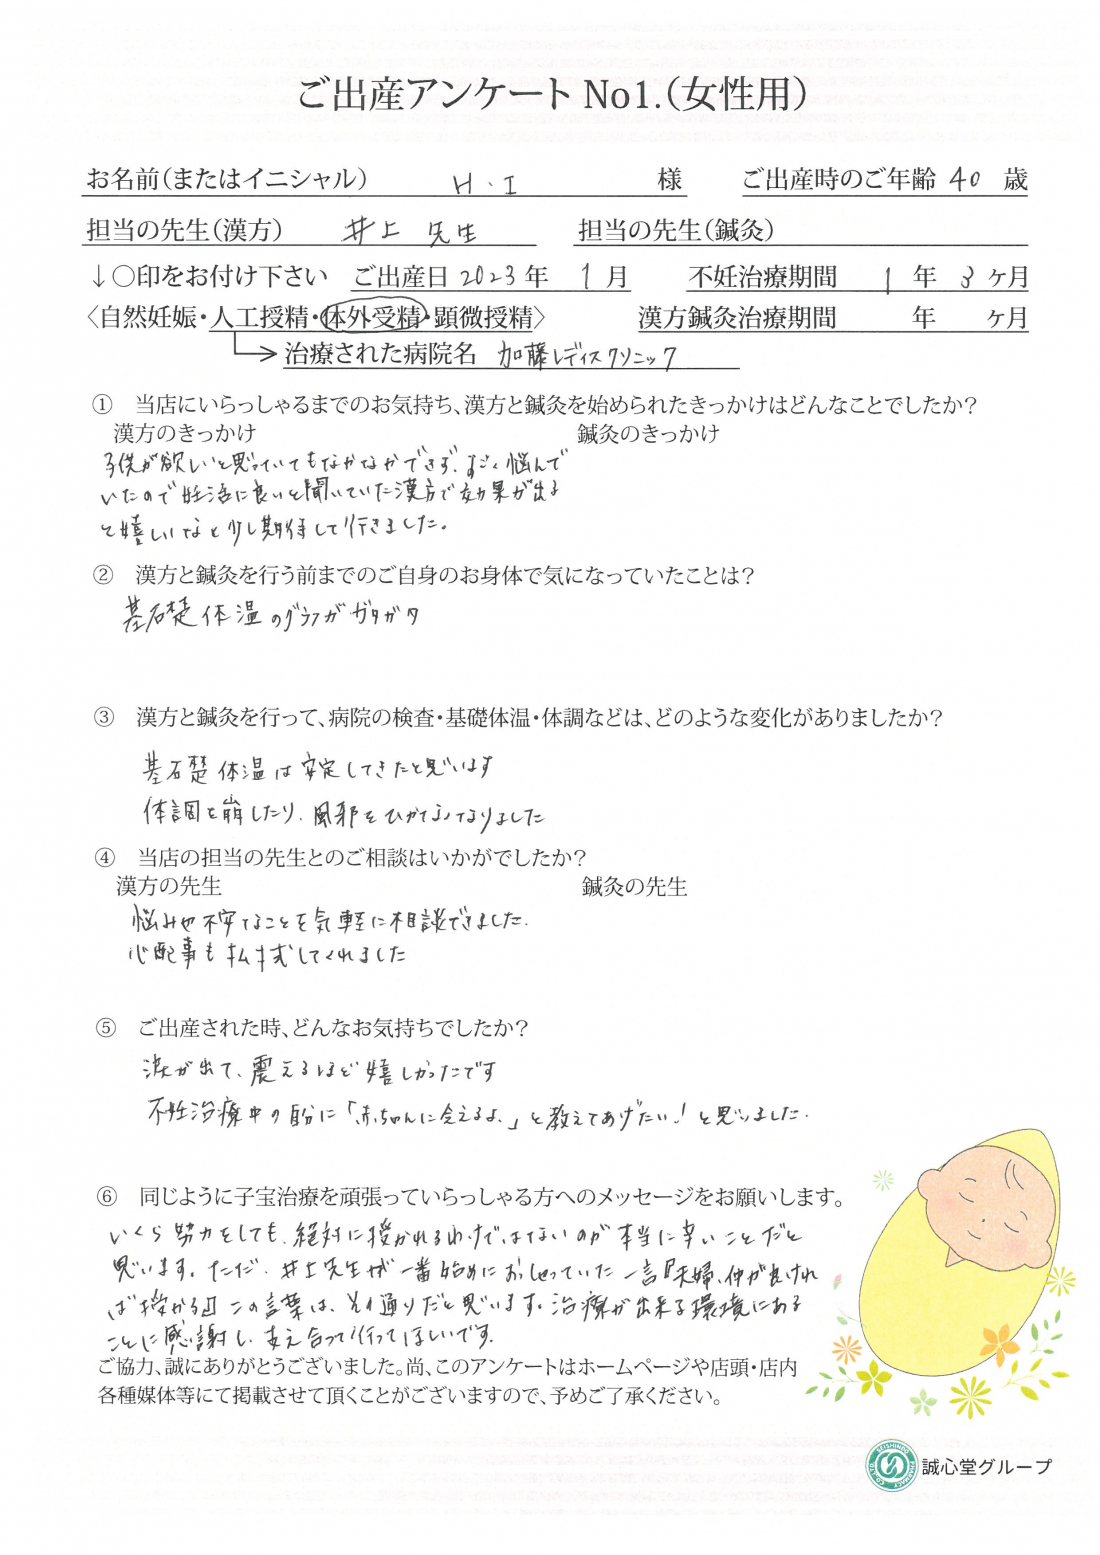 ご出産アンケート No1.(女性用)
お名前(またはイニシャル) H・I 様 ご出産時のご年齢 40 歳
担当の先生(漢方) 井上 先生 担当の先生(鍼灸)
↓○印をお付け下さい ご出産日 2023年 1月 不妊治療期間 1年 3ヶ月
〈自然妊娠・人工授精・体外受精・顕微授精〉 漢方鍼灸治療期間 年 ヶ月
治療された病院名 加藤レディスクリニック
① 当店にいらっしゃるまでのお気持ち、漢方と鍼灸を始められたきっかけはどんなことでしたか?
漢方のきっかけ 鍼灸のきっかけ
子供が欲しいと思っていてもなかなかできず、すごく悩んで
いたので妊活に良いと聞いていた漢方で効果が出る
と嬉しいなと少し期待して行きました。
② 漢方と鍼灸を行う前までのご自身のお身体で気になっていたことは?
基礎体温のグラフがガタガタ
③ 漢方と鍼灸を行って、病院の検査・基礎体温・体調などは、どのような変化がありましたか?
基礎体温は安定してきたと思います
体調を崩したり、風邪をひかなくなりました
④ 当店の担当の先生とのご相談はいかがでしたか?
漢方の先生 鍼灸の先生
悩みや不安なことを気軽に相談できました.
心配事も払拭してくれました
⑤ ご出産された時、どんなお気持ちでしたか?
涙が出て、震えるほど嬉しかったです
不妊治療中の自分に「赤ちゃんに会えるよ、」と教えてあげたい!と思いました.
⑥ 同じように子宝治療を頑張っていらっしゃる方へのメッセージをお願いします。
いくら努力をしても、絶対に授かれるわけではないのが本当に辛いことだと
思います。ただ、井上先生が一番始めにおっしゃっていた一言『夫婦、仲が良けれ
ば授かる』この言葉は、その通りだと思います。治療が出来る環境にある
ことに感謝し、支え合って行ってほしいです.
ご協力、誠にありがとうございました。尚、このアンケートはホームページや店頭・店内
各種媒体等にて掲載させて頂くことがございますので、予めご了承ください。
SEISHINDO PHARMACY CO.,LTD.
誠心堂グループ